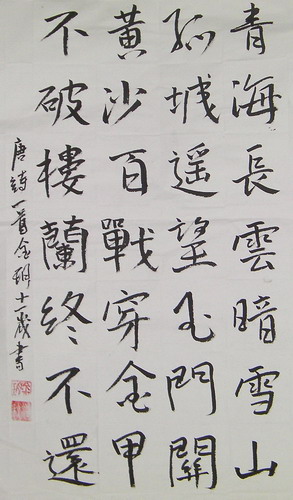 青海長雲暗雪山
孤城遥望玉門關
黃沙百戰穿金甲
不破樓蘭終不還
唐詩一首金翔十一歲書